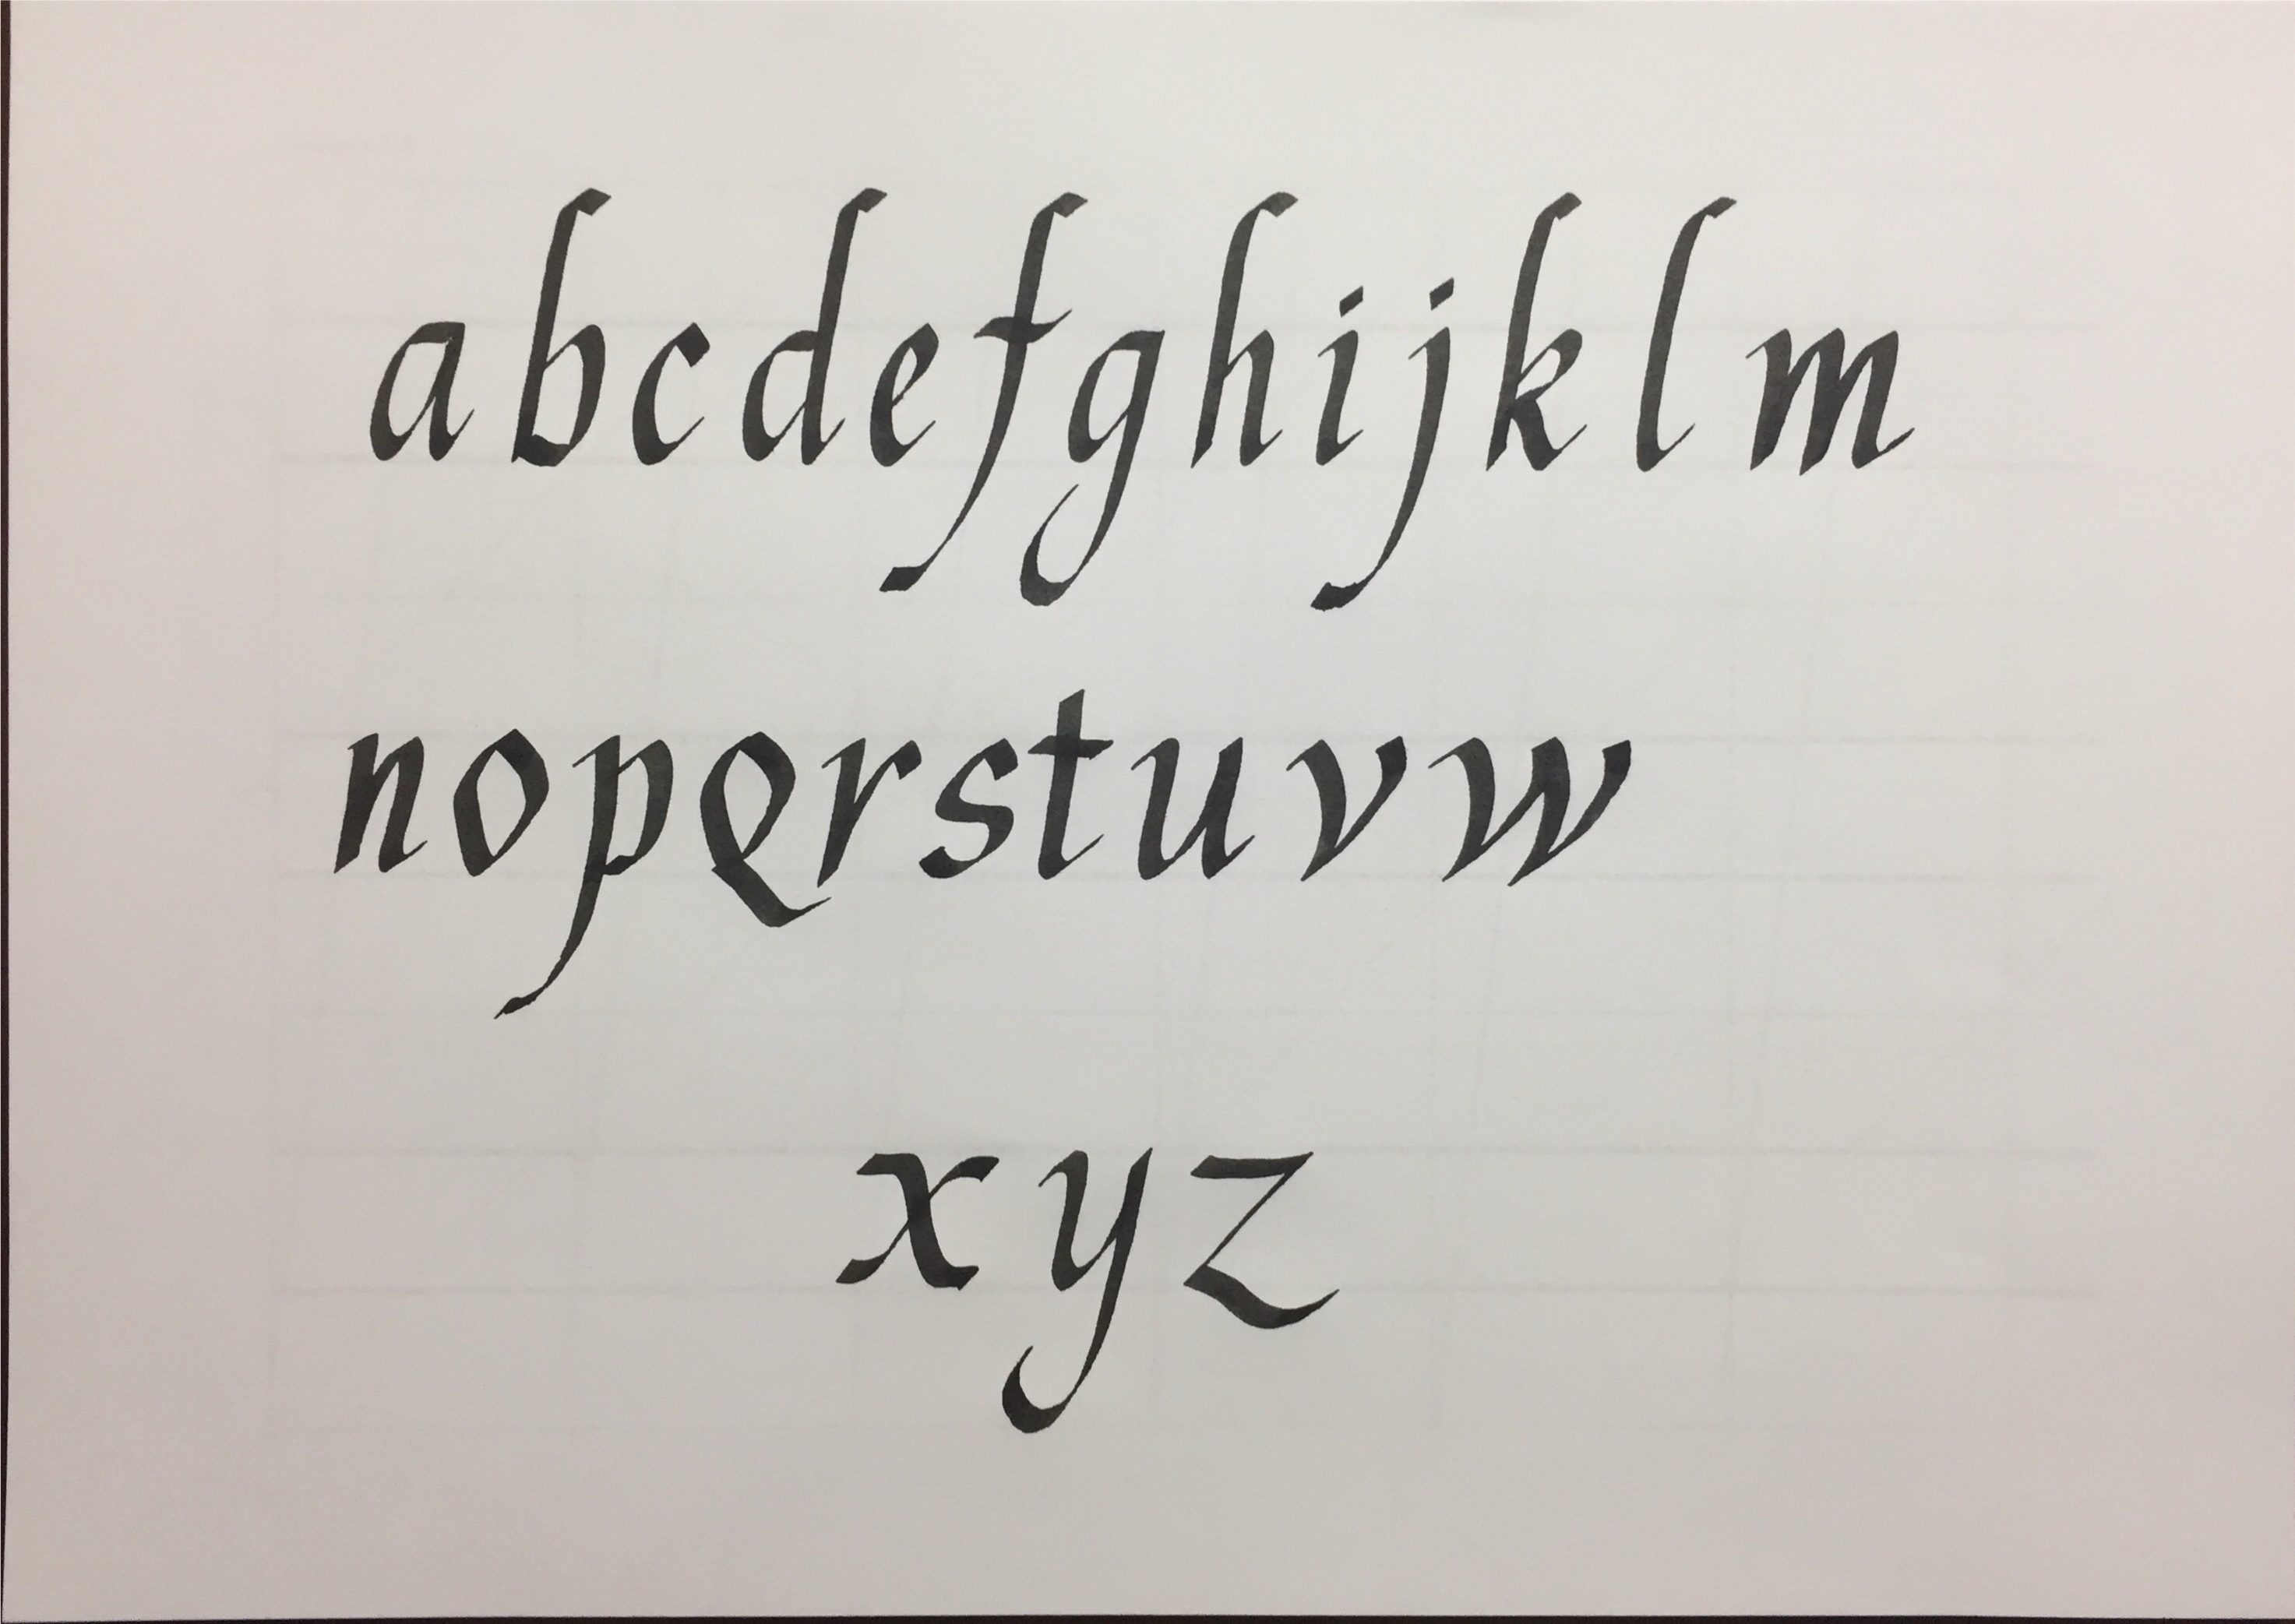 a b c d e f g h i j k l m
n o p Q r s t u v w
x y z